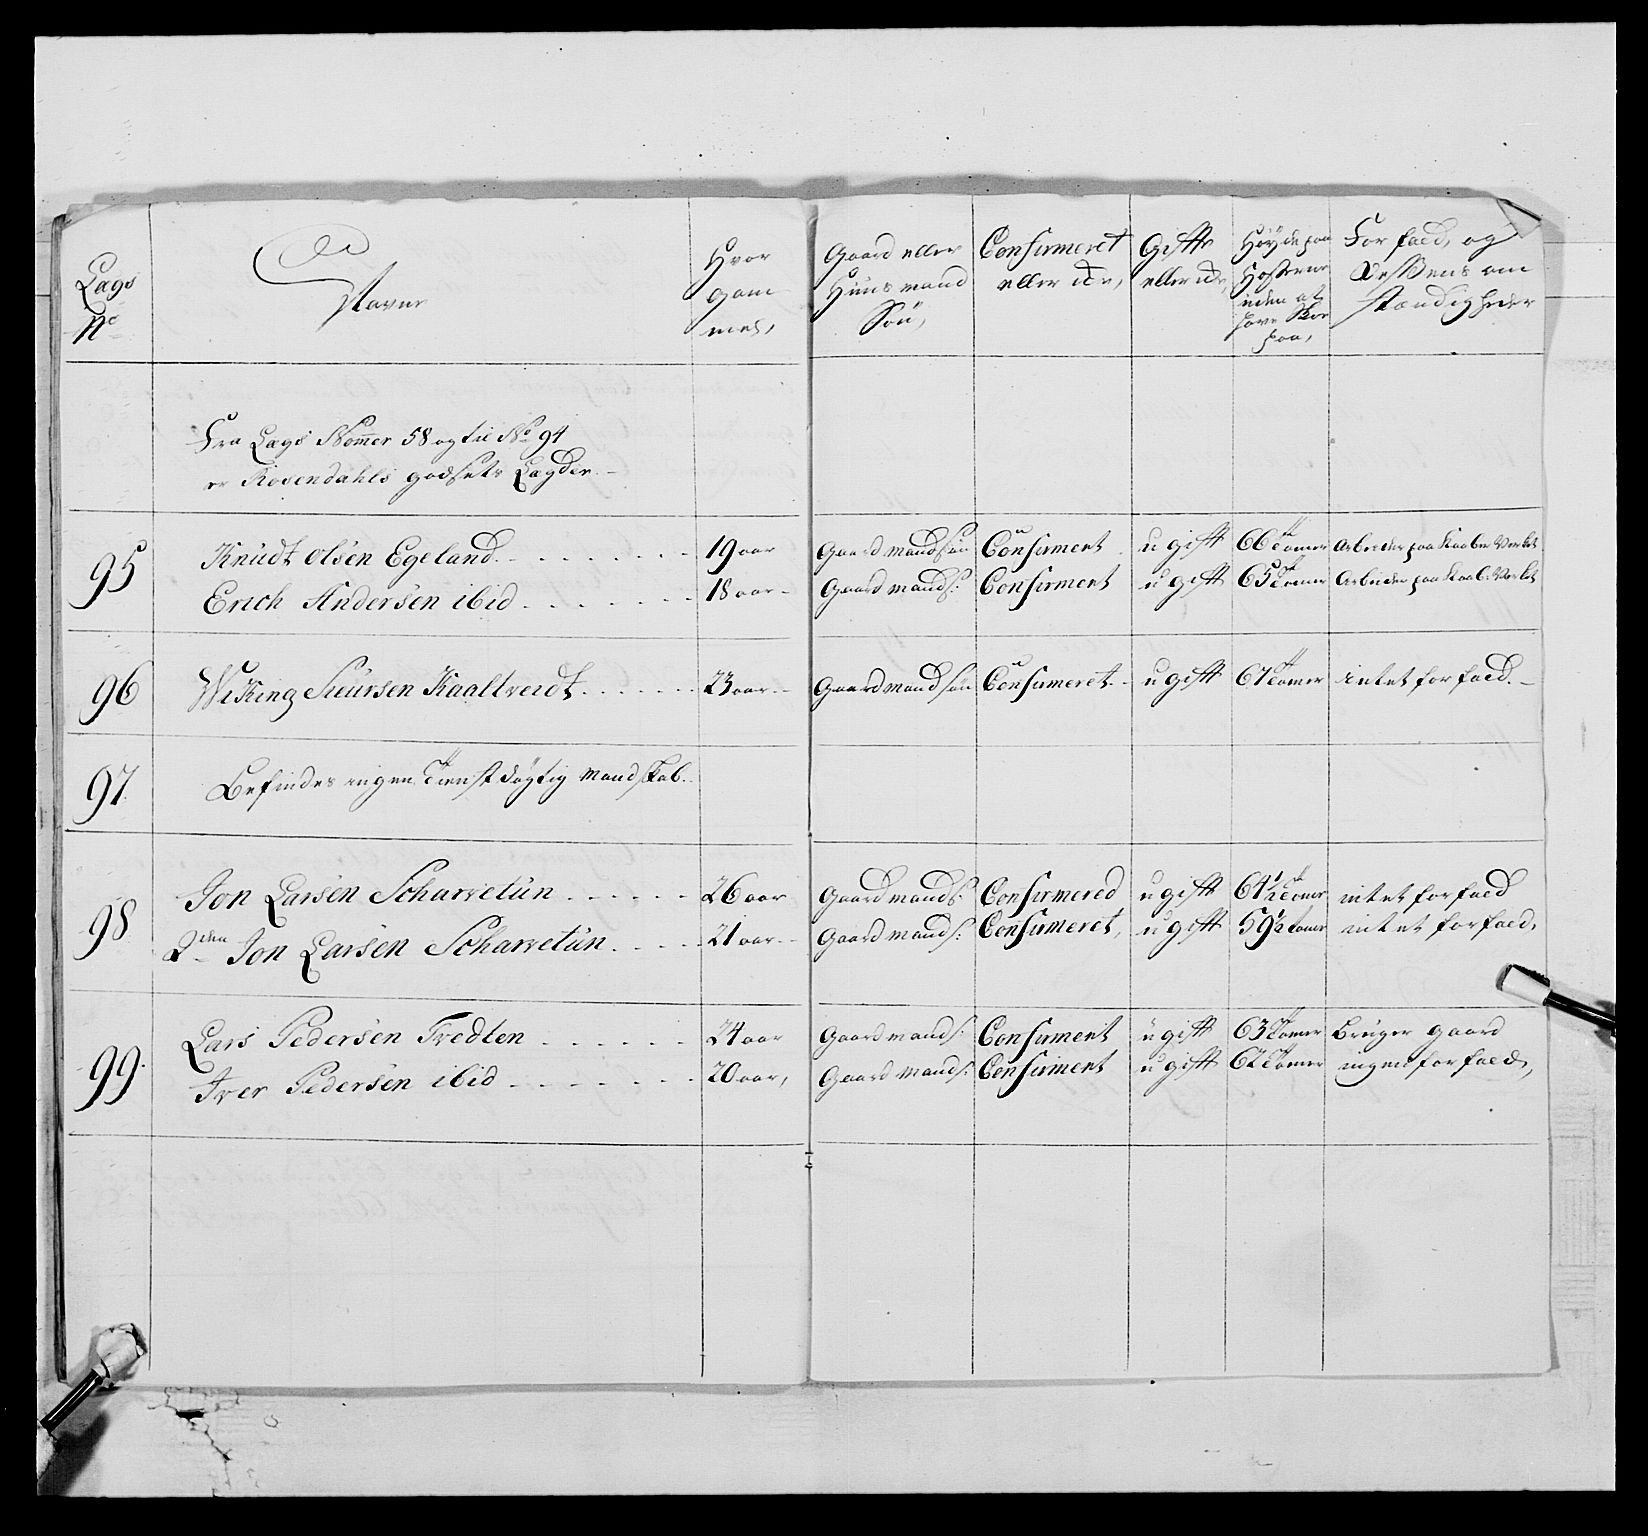 Lægs No
Navne
Hvor gammel,
Gaard eller Huusmand Søn,
Confirmeret eller icke,
Gifte eller icke,
Høyde paa Hosterne uden at have Skoe paa,
Forfald, og desSens omstændigheder
Fra Lægs Nommer 58 og til No 94
er Rosendahls godsets Lægder. -
95 Knudt Olsen Egeland. 19 aar Gaardmandsøn Confirment ugift 66 Tomer Arbeider paa Kaaber Verket
Erich Andersen ibid 18 aar - Gaardmands: Confirment ugift 65 Tomer Arbeider paa Kaab: Verket
96 Wiking Sieursen Kaaltveidt 23 aar - Gaardmandsøn Confirmeret - ugift 67 Tomer intet forfald. -
97. Befindes ingen Tienstdygtig Mandskab.
98 Jon Larsen Scharretün 26 aar Gaardmands: Confirmered ugift 64 1/2 Tomer intet forfald
2den Jon Larsen Scharretün 21 aar - Gaardmands: Confirmeret, ugift 59 1/2 Tomer intet forfald,
99. Lars Pedersen Tredten 24 aar Gaardmands: Confirment ugift 63 Tomer Bruger gaard
Iver Pedersen ibid 20 aar, Gaardmands: Confirment ugift 62 Tomer ingen forfald,